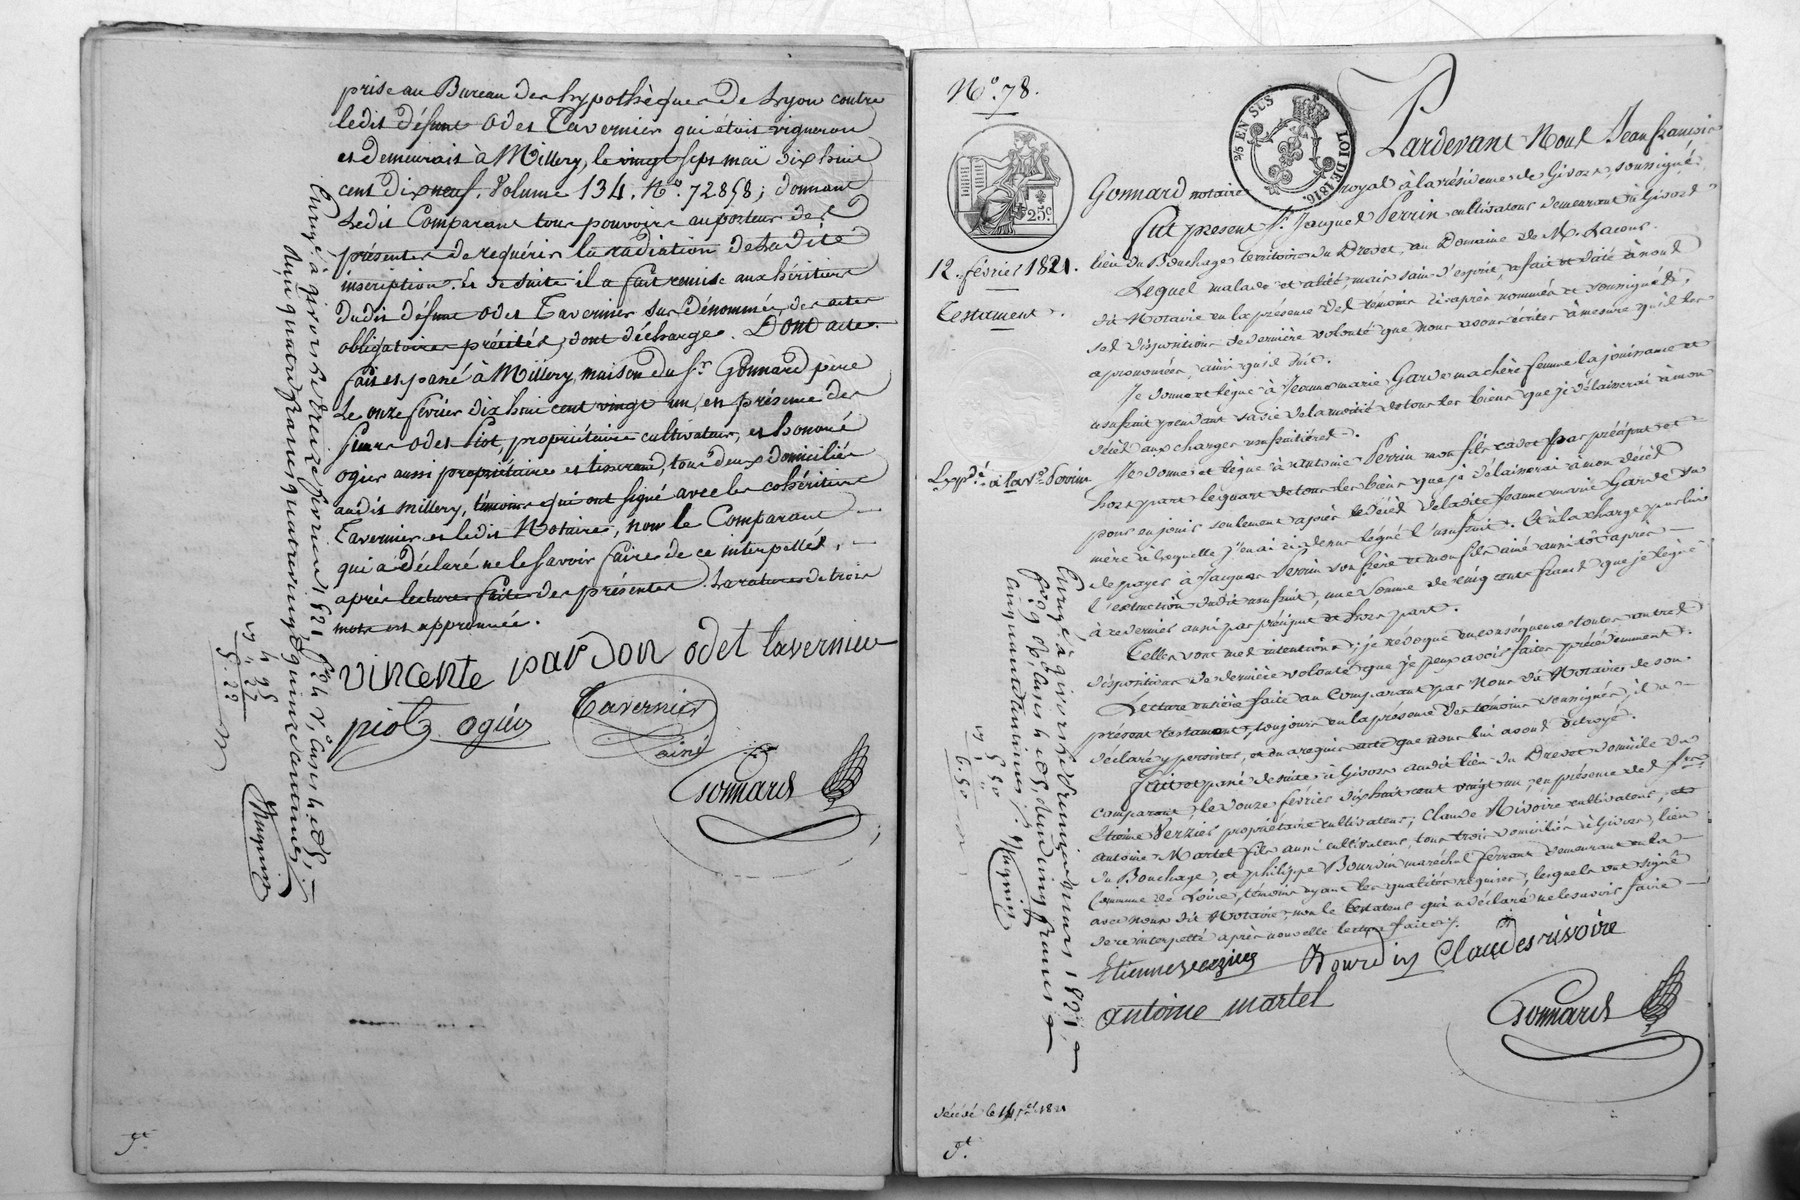 prise au Bureau des hypothèques de Lyon contre
ledit défunt Odet Tavernier qui étoit vigneron
et demeurait à Millery, le vingt sept mai dix huit
cent dix neuf, Volume 134, N° 72858; donnant
Ledit Comparant tous pouvoirs au porteur des
présentes de requérir la radiation de ladite
inscription. Et de suite il a fait remise aux héritiers
dudit défunt Odet Tavernier sus dénommés, des actes
obligatoires précités, dont décharge. Dont acte.
fait et passé à Millery, maison du Sr. Gonnard père
Le onze février dix huit cent vingt un, en présence des
sieurs Odet Piot, propriétaire cultivateur, et honoré
ogier aussi propriétaire et tisserand, tous deux domiciliés
audit millery, témoins qui ont signé avec les cohéritiers
Tavernier et ledit Notaire, non le Comparant
qui a déclaré ne le savoir faire de ce interpellé,
après lecture faite des présentes. La rature de trois
mots est approuvée.
vincente pardon odet tavernier
piot ogier Tavernier
ainé
Gonnard
Enregé à givors le treize février 1821 f° 24 v° cases 4 et 5,
Reçu quatre francs quatre vingt quinze centimes
4 95
5. 22
N° 78.
25c
2/5 EN SUS
LOI DE 1816
12. février 1821.
Testament.
Expé. à la ve. Perrin
Pardevant Nous Jean françois
Gonnard notaire royal à la résidence de Givors, soussigné.
fut présent Sr. Jacques Perrin cultivateur demeurant à Givors
lieu du Bouchage, territoire du Drevet, au Domaine de M. Lacour.
Lequel malade et alité, mais sain d'esprit, a fait et dicté à nous
dit Notaire en la présence des témoins ci après nommés et soussignés,
ses dispositions de dernière volonté que nous avons écrites à mesure qu'il les
a prononcées, ainsi qu'il suit.
Je donne et lègue à Jeanne marie Garde ma chère femme la jouissance et
usufruit pendant sa vie de la moitié de tous les biens que je délaisserai à mon
décès aux charges usufruitières.
Je donne et lègue à antoine Perrin mon fils cadet par préciput et
hors part le quart de tous les biens que je délaisserai à mon décès
pour en jouir seulement après le décès de ladite Jeanne marie Garde sa
mère à laquelle j'en ai ci dessus légué l'usufruit. Et à la charge par lui
de payer à Jacques Perrin son frère et mon fils ainé aussitôt après
l'extinction dudit usufruit, une somme de cinq cents francs que je lègue
à ce dernier aussi par préciput et hors part.
Telles sont mes intentions; je révoque en conséquence toutes autres
dispositions de dernière volonté que je peux avoir faites précédemment.
Lecture entière faite au Comparant par Nous dit Notaire de son
présent testament, toujours en la présence des témoins soussignés, il a
déclaré y persister, et en a requis acte que nous lui avons octroyé.
fait et passé de suite à Givors audit lieu du Drevet domicile du
comparant, le douze février dix huit cent vingt un, en présence des srs.
Etienne Verzier propriétaire cultivateur, Claude Rivoire cultivateur, et
antoine Martel fils aussi cultivateur, tous trois domiciliés à Givors, lieu
du Bouchage, et philippe Bourdin maréchal ferrant demeurant en la
Commune de Loire, témoins ayant les qualités requises, lesquels ont signé
avec nous dit Notaire, non le testateur qui a déclaré ne le savoir faire
de ce interpellé après nouvelle lecture faite.
Etienne verzier Bourdin Claudes rivoire
antoine martel
Gonnard
Enregé à givors le treize février 1821,
cinquante centimes
5 50
6. 50